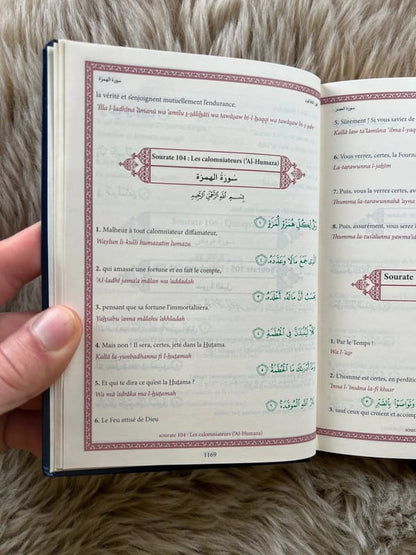 سورة الهمزة
la vérité et s'enjoignent mutuellement l'endurance.
'Illa l-ladhîna 'âmanû wa 'amilu ṣ-ṣâliḥâti wa tawâṣaw bi l-ḥaqqi wa tawâṣaw bi ṣ-ṣabr
Sourate 104 : Les calomniateurs ('Al-Humaza)
سورة الهمزة
بسم الله الرحمن الرحيم
وَيْلٌ لِكُلِّ هُمَزَةٍ لُمَزَةٍ ١
1. Malheur à tout calomniateur diffamateur,
Waylun li-kulli humazatin lumaza
الَّذِي جَمَعَ مَالًا وَعَدَّدَهُ ٢
2. qui amasse une fortune et en fait le compte,
'Al-ladhî jama'a mâlan wa 'addadah
يَحْسَبُ أَنَّ مَالَهُ أَخْلَدَهُ ٣
3. pensant que sa fortune l'immortalisera.
Yaḥsabu 'anna mâlahu 'akhladah
كَلَّا لَيُنْبَذَنَّ فِي الْحُطَمَةِ ٤
4. Mais non ! Il sera, certes, jeté dans la Hutama.
Kallâ la-yumbadhanna fi l-ḥuṭamah
وَمَا أَدْرَاكَ مَا الْحُطَمَةُ ٥
5. Et qui te dira ce qu'est la Hutama ?
Wa mâ 'adrâka ma l-ḥuṭamah
نَارُ اللَّهِ الْمُوقَدَةُ ٦
6. Le Feu attisé de Dieu
sourate 104 : Les calomniateurs ('Al-Humaza)
1169
سورة العصر
5. Sûrement ! Si vous saviez de
Kallâ law ta'lamûna 'ilma
6. Vous verrez, certes, la Fourna
La-tarawunna l-jaḥîm
7. Puis, vous la verrez, certes, av
Thumma la-tarawunnahâ 'ayna
8. Puis, assurément, vous serez
Thumma la-tus'alunna yawma
Sourate
1. Par le Temps !
Wa l-'aṣr
2. L'homme est, certes, en perdition
'Inna l-'insâna la-fî khusr
وَتَوَاصَوْا بِالصَّبْرِ
3. sauf ceux qui croient et accompl
sourate 103